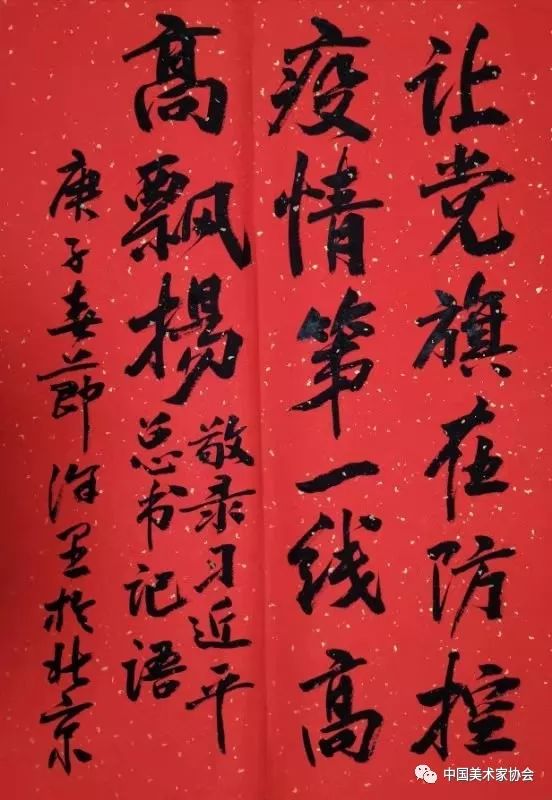 让党旗在防控
疫情第一线高
高飘扬
敬录习近平
总书记语
庚子春节徐里於北京
中国美术家协会